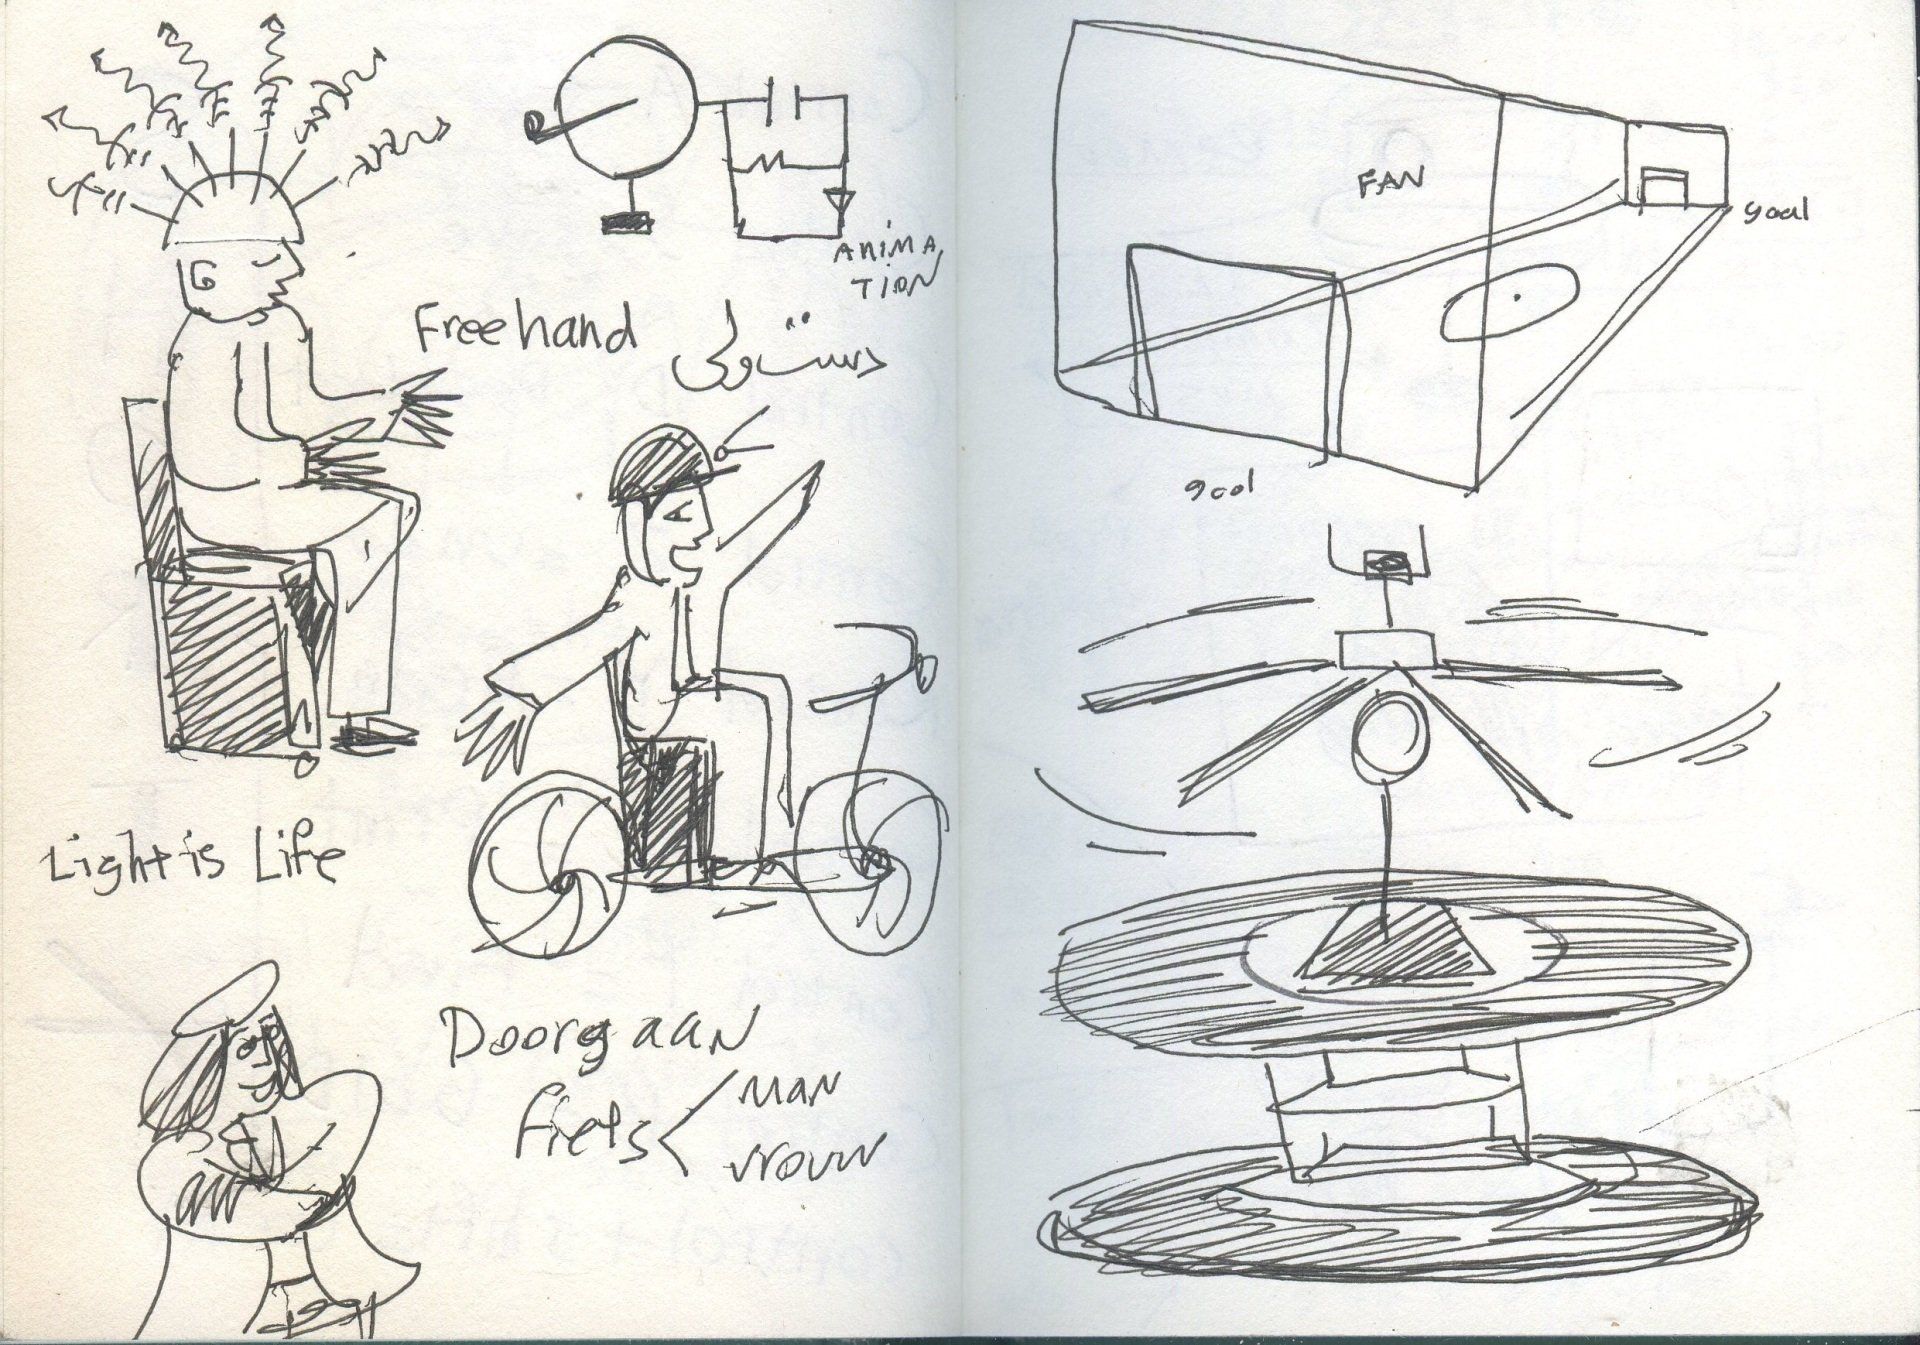 ANIMA
TION
Freehand دستولی
Light is Life
Doorgaan
fiets < man
vrouw
FAN
goal
goal